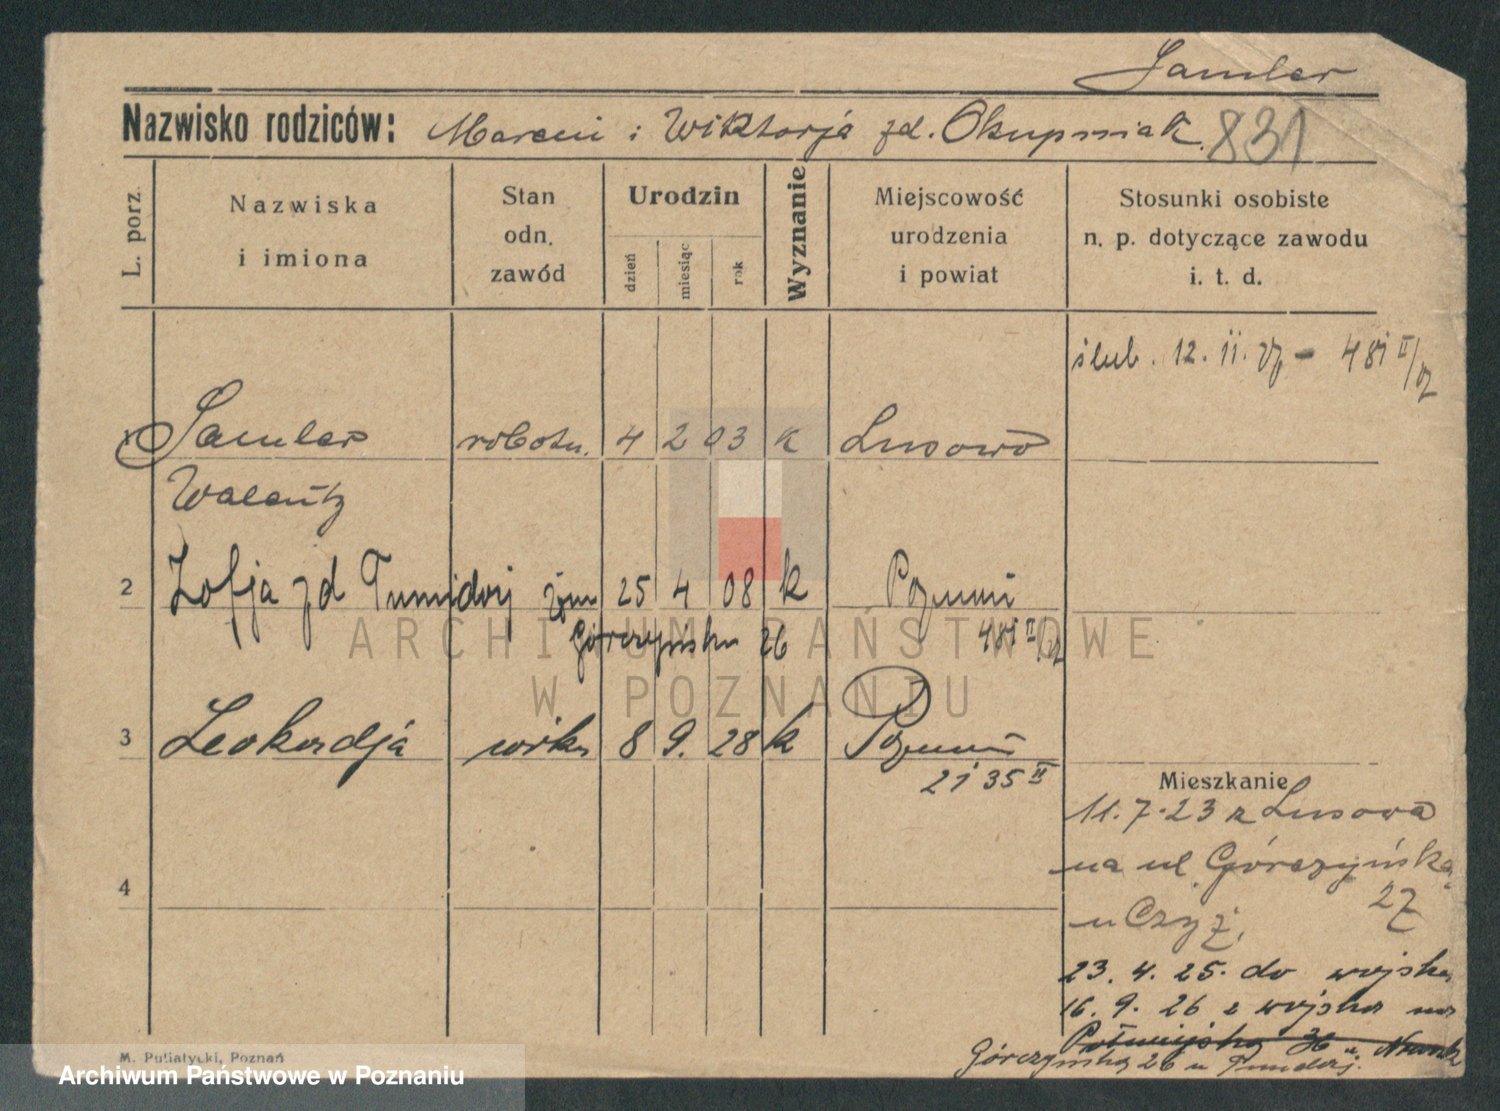 Samler
Nazwisko rodziców: Marcin i Wiktorja zd. Okupniak. 831
L. porz.
Nazwiska
i imiona
Stan
odn.
zawód
Urodzin
dzień
miesiąc
rok
Wyznanie
Miejscowość
urodzenia
i powiat
Stosunki osobiste
n. p. dotyczące zawodu
i. t. d.
ślub. 12. II. 27 - 481 II/27
1 Samler robotn. 4 2 03 k Lusowo
Walenty
2 Zofja zd Tumidaj żona 25 4 08 k Poznań
Górczyńska 26 481 II/27
3 Leokadja córka 8 9. 28 k Poznań
2135 II
Mieszkanie
11.7.23 z Lusowa
na ul. Górczyńska
27
u Czyż.
4
23. 4. 25. do wojska
16. 9. 26 z wojska na
36 u
Górczyńska 26 u Tumidaj.
M. Putiatycki, Poznań
ARCHIWUM PAŃSTWOWE
W POZNANIU
Archiwum Państwowe w Poznaniu